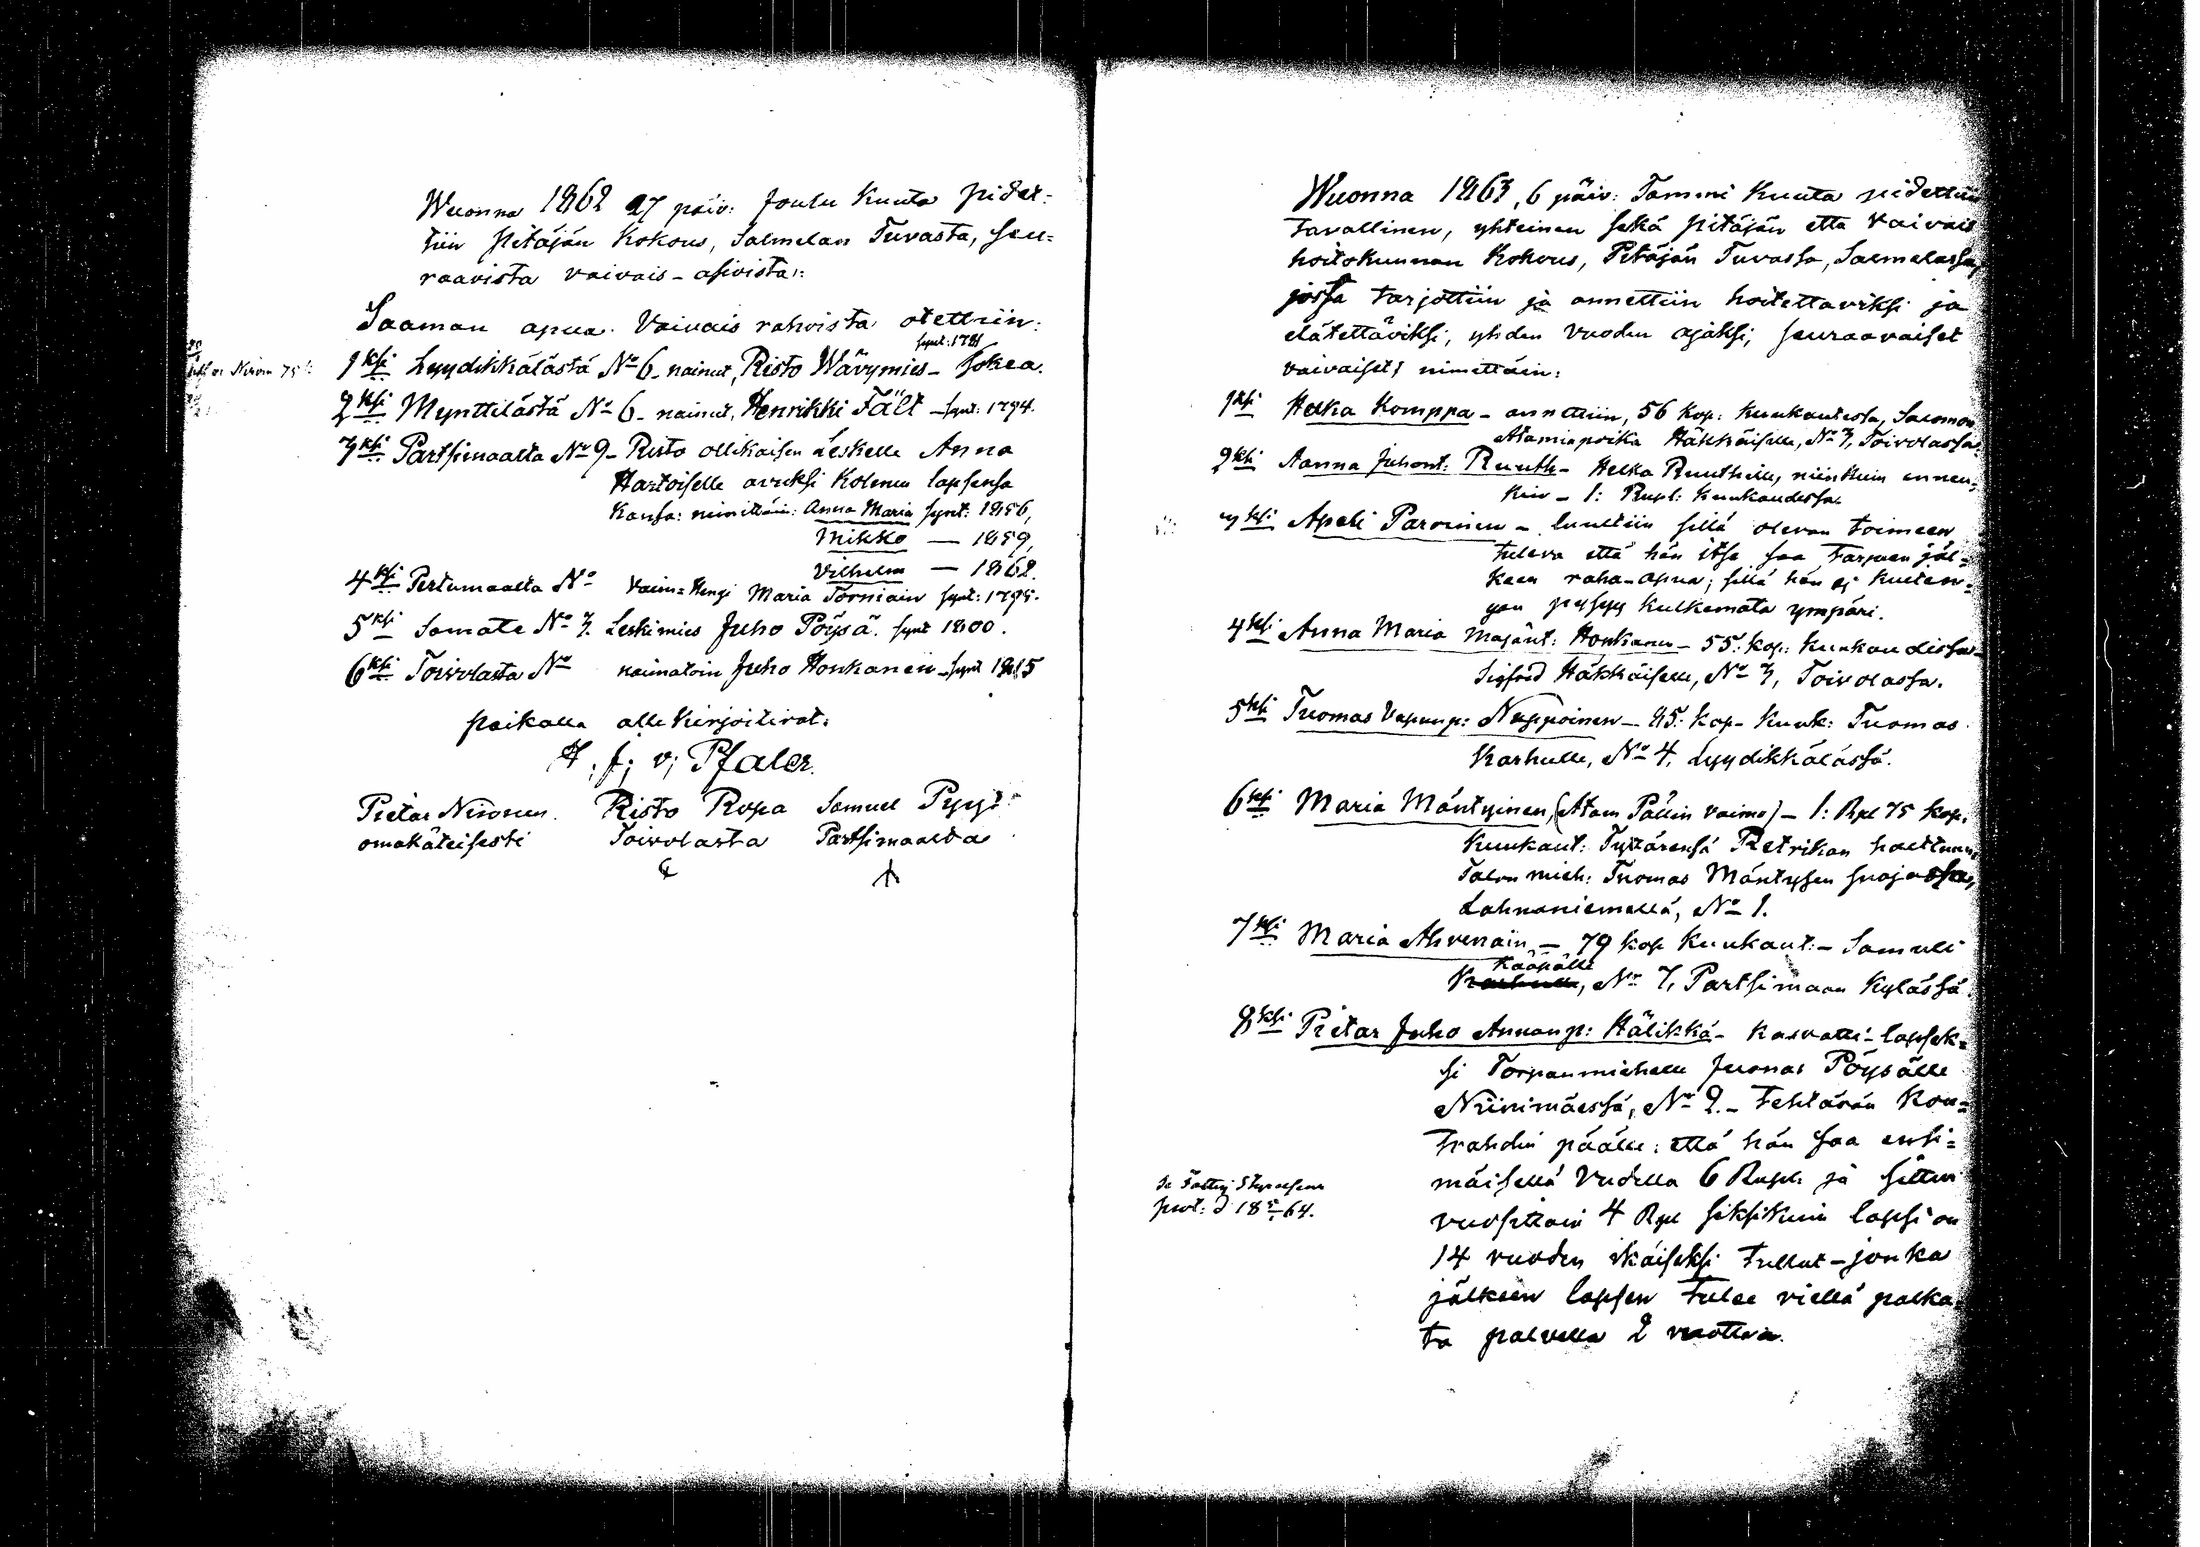 Wuonna 1862 27 päiv: Joulu Kuuta pidet=
tiin Pitäjän Kokous, Salmelan Tuvasta, seu=
raavista vaivais-asioista:
Saaman apua Vaivais rahoista otettiin:
synt: 1781
1ksi Lyydikkälästä No 6. nainut, Risto Wävymies - sokea.
2ksi Mynttilästä No 6 - nainut, Henrikki Fält - synt: 1794.
3ksi Partsimaalta No 9 - Risto ollikaisen Leskelle Anna
Hartoiselle avuksi Kolmen lapsensa
Kansa: nimittäin: Anna Maria synt: 1856,
Mikko — 1859,
Vilhelm — 1862.
4ksi Pertumaalta No Vaim=Hengi Maria Torniain synt: 1795.
5ksi Somate No 3. Leskimies Juho Pöysä. synt 1800.
6ksi Toivolasta No naimatoin Juho Honkanen - synt 1815
paikalla alle Kirjoitivat:
H. f; v; Pfaler.
Pietar Nironen. Risto Ropa Samuel Pyy
omakäteisesti Toivolasta Partsimaalda
Wuonna 1863, 6 päiv: Tammi Kuuta pidettiin
tavallinen, yhteinen sekä pitäjän että Vaivais
hoitokunnan Kokous, Pitäjän Tuvassa, Salmelassa,
jossa tarjottiin ja annettiin hoitettaviksi ja
elätettäviksi, yhden vuoden ajaksi, seuraavaiset
vaivaiset; nimittäin:
1ksi Helka Komppa - annettiin, 56 kop: Kuukautesta, Salomon
Atamiapoika Häkkäiselle, No 3, Toivolassa.
2ksi Aanna Juhont: Ruuth - Helka Ruuthille, niinkuin ennen=
kin - 1: Rupl: Kuukaudessa.
3ksi Apeli Paroinen - luultiin sillä olevan toimeen
tuleva että hän itse saa tarpeen jäl=
keen raha-apua; sillä hän ej kuiten=
gan pysyy kulkemata ympäri.
4ksi Anna Maria Majänt: Honkanen - 55. kop: Kuukaudessa -
Sigfrid Häkkäiselle, No 3, Toivolassa.
5ksi Tuomas Vapunp: Nuppoinen - 45. kop - Kuuk: Tuomas
Karhulle, No 4, Lyydikkälässä.
6ksi Maria Mäntyinen, (Atam Pällin Vaimo) - 1: Rpl 75 kop:
Kuukaut: Tyttärensä Retrikan
Talon mieh: Tuomas Mäntysen
Lahnaniemellä, No 1.
7ksi Maria Ahvenain - 79 kop Kuukaut: - Samuli
Kääpälle
Karhulle, No 7, Partsimaan Kylässä.
8ksi Pietar Juho Annanp: Hälikkä - Kasvatti-lapsek=
si Torpanmiehelle Juonas Pöysälle
Niinimäessä, No 2. - Tehtävän Kon=
trahdin päälle: että hän saa ensi=
mäisellä Vudella 6 Rupl: ja sitten
vuosittain 4 Rpl siksikuin lapsi on
14 vuoden ikäiseksi tullut - jonka
jälkeen lapsen tulee viellä palka
ta palvella 2 vuottaa.
prot: d 18 64.